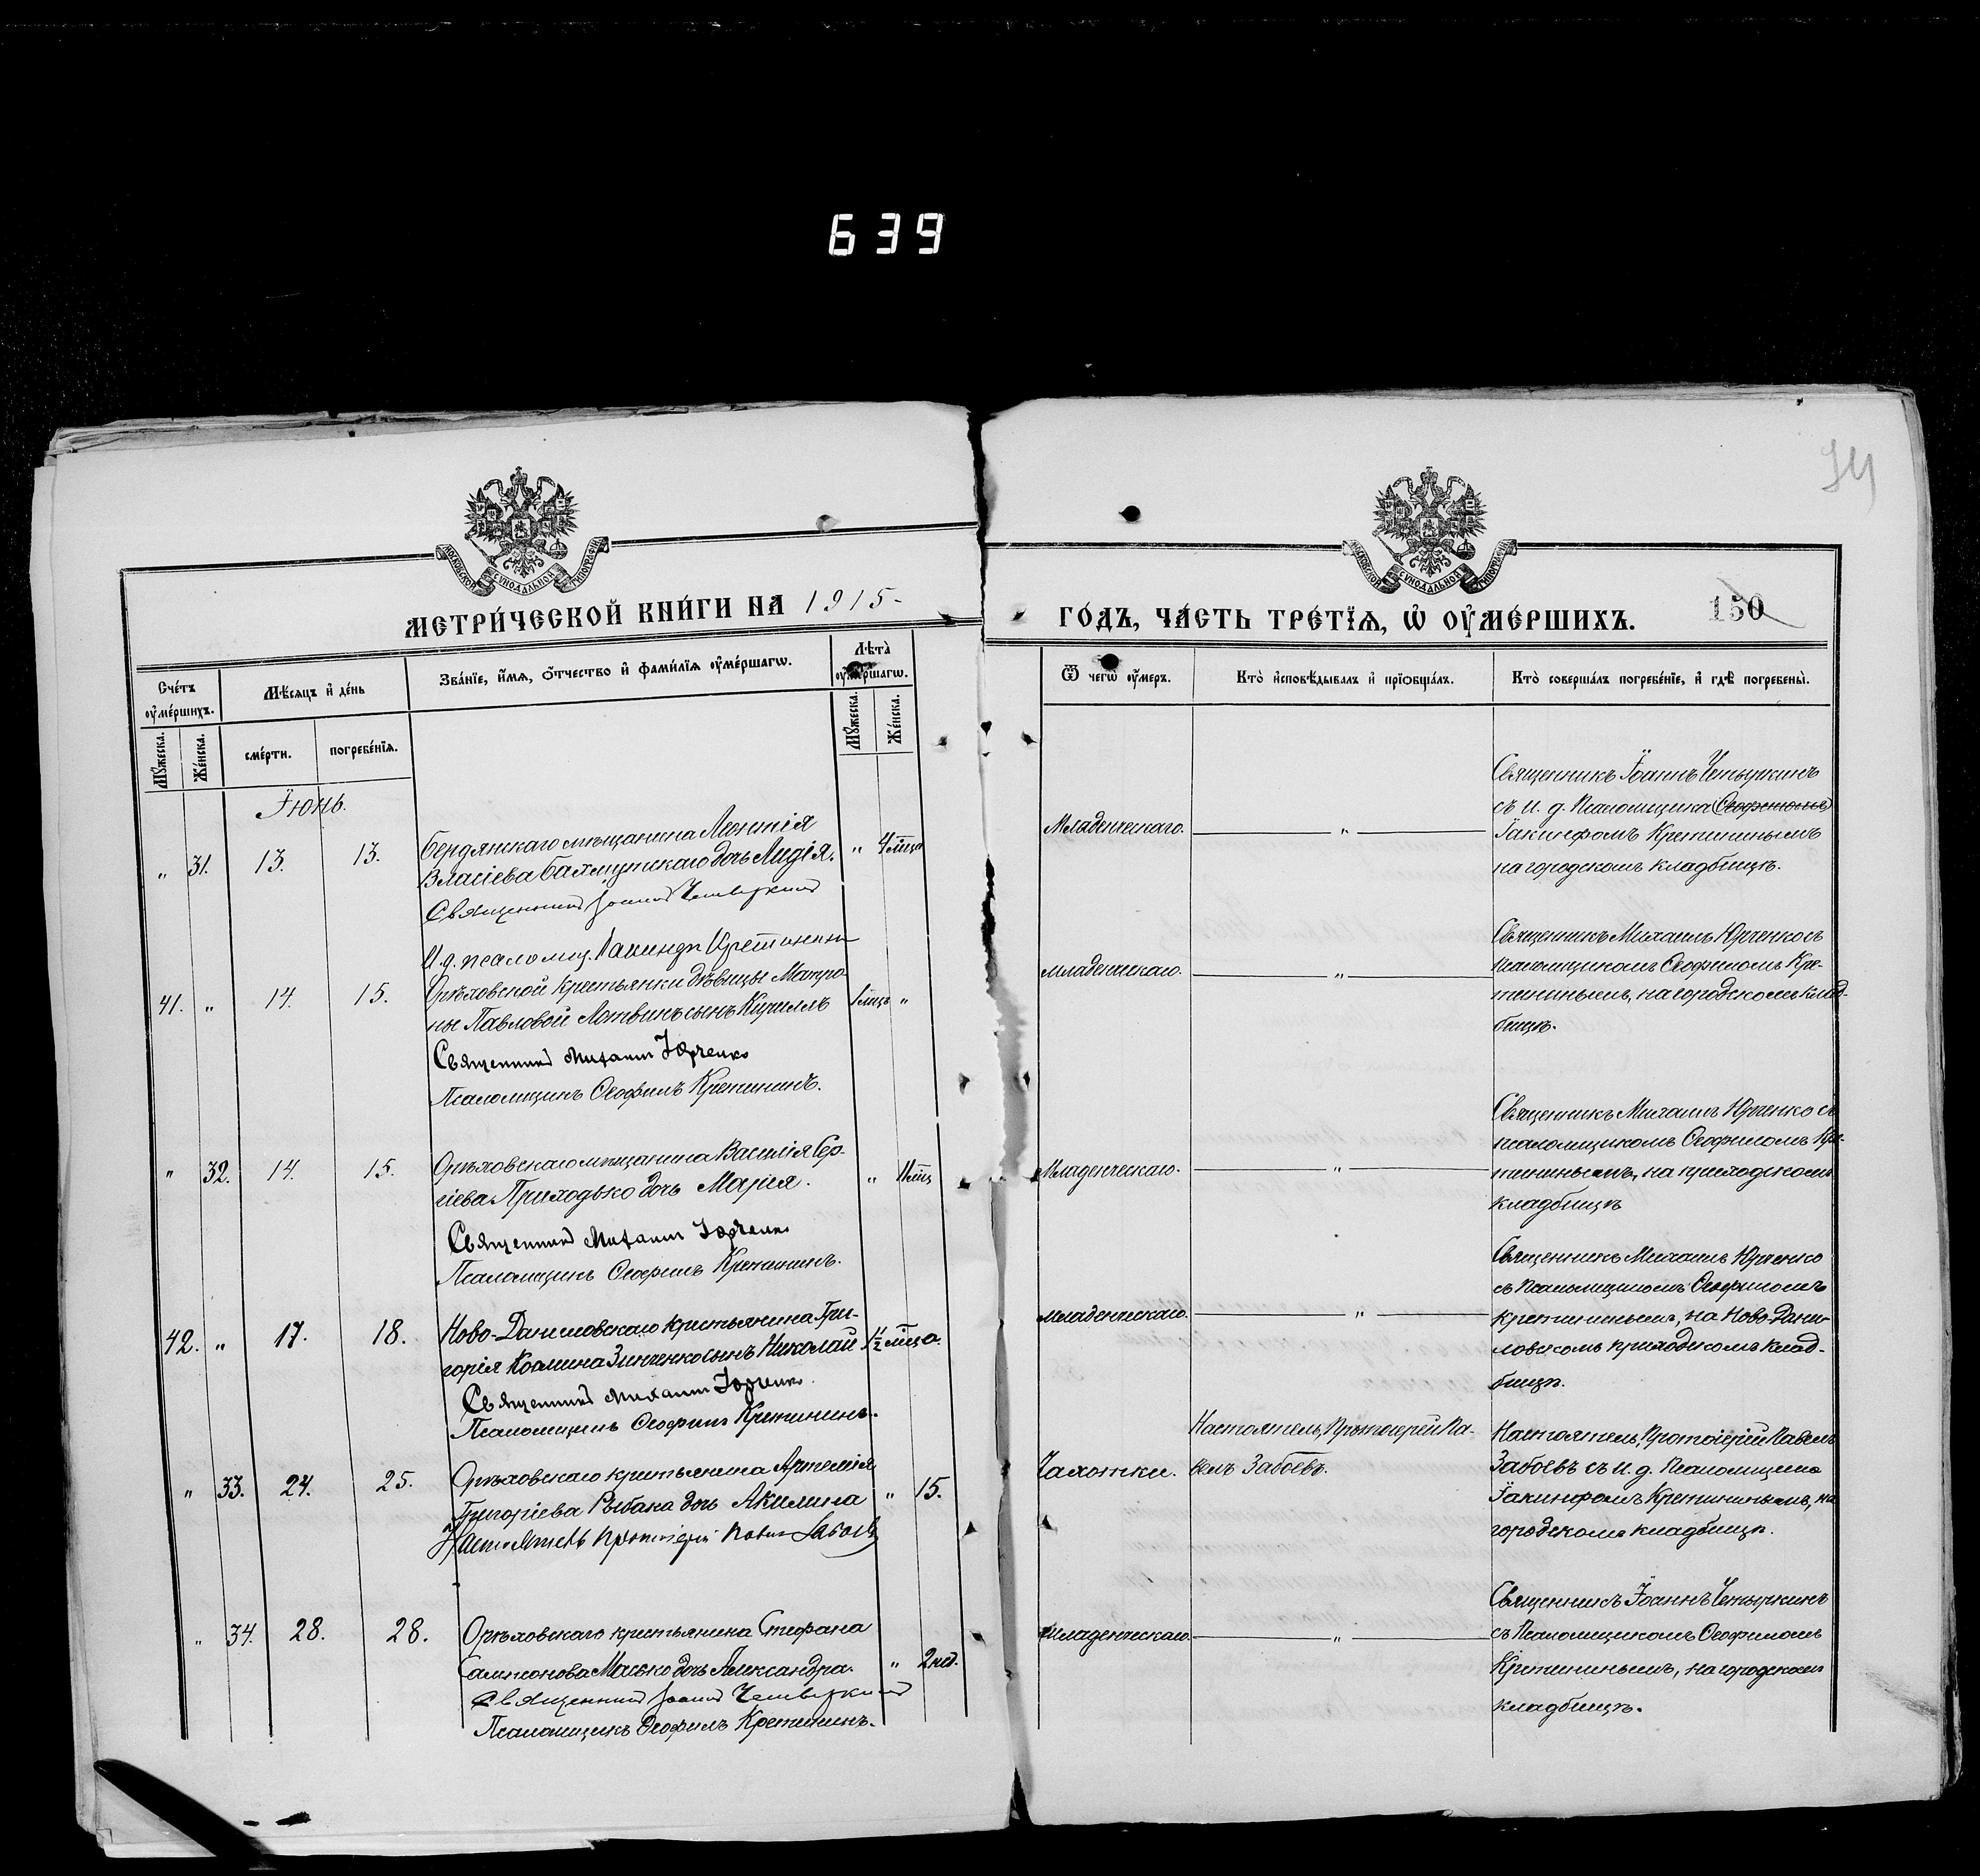 639
34
МОСКОВСКОЙ СѴНОДАЛЬНОЙ ТИПОГРАФІИ
МОСКОВСКОЙ СѴНОДАЛЬНОЙ ТИПОГРАФІИ
МЕТРИ́ЧЕСКОЙ КНИ́ГИ НА 1915-
ГО́ДЪ, ЧА́СТЬ ТРЕ́ТЇѦ, Ѡ ОУ҆МЕ́РШИХЪ.
150
Сче́тъ оу҆ме́ршихъ.
Мѣ́сяцъ и҆ де́нь
Зва́нїе, и҆́мѧ, ѻ҆́тчество и҆ фами́лїѧ оу҆ме́ршагѡ.
Лѣ́та оу҆ме́ршагѡ.
Ѿ чегѡ̀ оу҆́меръ.
Кто̀ и҆сповѣ́дывалъ и҆ прїѡбща́лъ.
Кто̀ соверша́лъ погребе́нїе, и҆ гдѣ̀ погребены̀.
Мꙋ́жеска.
Же́нска.
сме́рти.
погребе́нїѧ.
Мꙋ́жеска.
Же́нска.
Іюнь.
" 31. 13. 13.
Бердянскаго мѣщанина Леонтія
Власіева Бахмутскаго дочь Лидія.
" 4 мѣсца
Священникъ Іоаннъ Четыркинъ
И. д. псаломщ. Іакинфъ Кретининъ
Младенческаго. "
Священникъ Іоаннъ Четыркинъ
съ и. д. Псаломщика (Ѳеофиломъ)
Іакинфомъ Кретининымъ
на городскомъ кладбищѣ.
41. " 14. 15.
Орѣховской крестьянки дѣвицы Матро-
ны Павловой Литвинъ сынъ Кириллъ
1 мѣсцъ "
Священникъ Михаилъ Юрченко
Псаломщикъ Ѳеофилъ Кретининъ.
Младенческаго. "
Священникъ Михаилъ Юрченко съ
псаломщикомъ Ѳеофиломъ Кре-
тининымъ, на городскомъ клад-
бищѣ.
" 32. 14. 15.
Орѣховскаго мѣщанина Василія Сер-
гіева Приходько дочь Марія.
" 11 мѣсц
Священникъ Михаилъ Юрченко
Псаломщикъ Ѳеофилъ Кретининъ.
Младенческаго. "
Священникъ Михаилъ Юрченко съ
псаломщикомъ Ѳеофиломъ Кре-
тининымъ, на приходскомъ
кладбищѣ
42. " 17. 18.
Ново-Даниловскаго крестьянина Гри-
горія Козмина Зинченко сынъ Николай
1½ мѣсца.
Священникъ Михаилъ Юрченко.
Псаломщикъ Ѳеофилъ Кретининъ.
Младенческаго. "
Священникъ Михаилъ Юрченко
съ Псаломщикомъ Ѳеофиломъ
Кретининымъ, на Ново-Дани-
ловскомъ приходскомъ клад-
бищѣ.
" 33. 24. 25.
Орѣховскаго крестьянина Артемія
Григоріева Рыбака дочь Акилина
" 15.
Настоятель Протоіерей Павелъ Забоевъ
Чахотки.
Настоятель, Протоіерей Па-
велъ Забоевъ.
Настоятель, Протоіерей Павелъ
Забоевъ съ и. д. Псаломщика
Іакинфомъ Кретининымъ, на
городскомъ кладбищѣ.
" 34. 28. 28.
Орѣховскаго крестьянина Стефана
Сампсонова Масько дочь Александра.
" 2 нед.
Священникъ Іоаннъ Четыркинъ
Псаломщикъ Ѳеофилъ Кретининъ.
Младенческаго. "
Священникъ Іоаннъ Четыркинъ
съ Псаломщикомъ Ѳеофиломъ
Кретининымъ, на городскомъ
кладбищѣ.